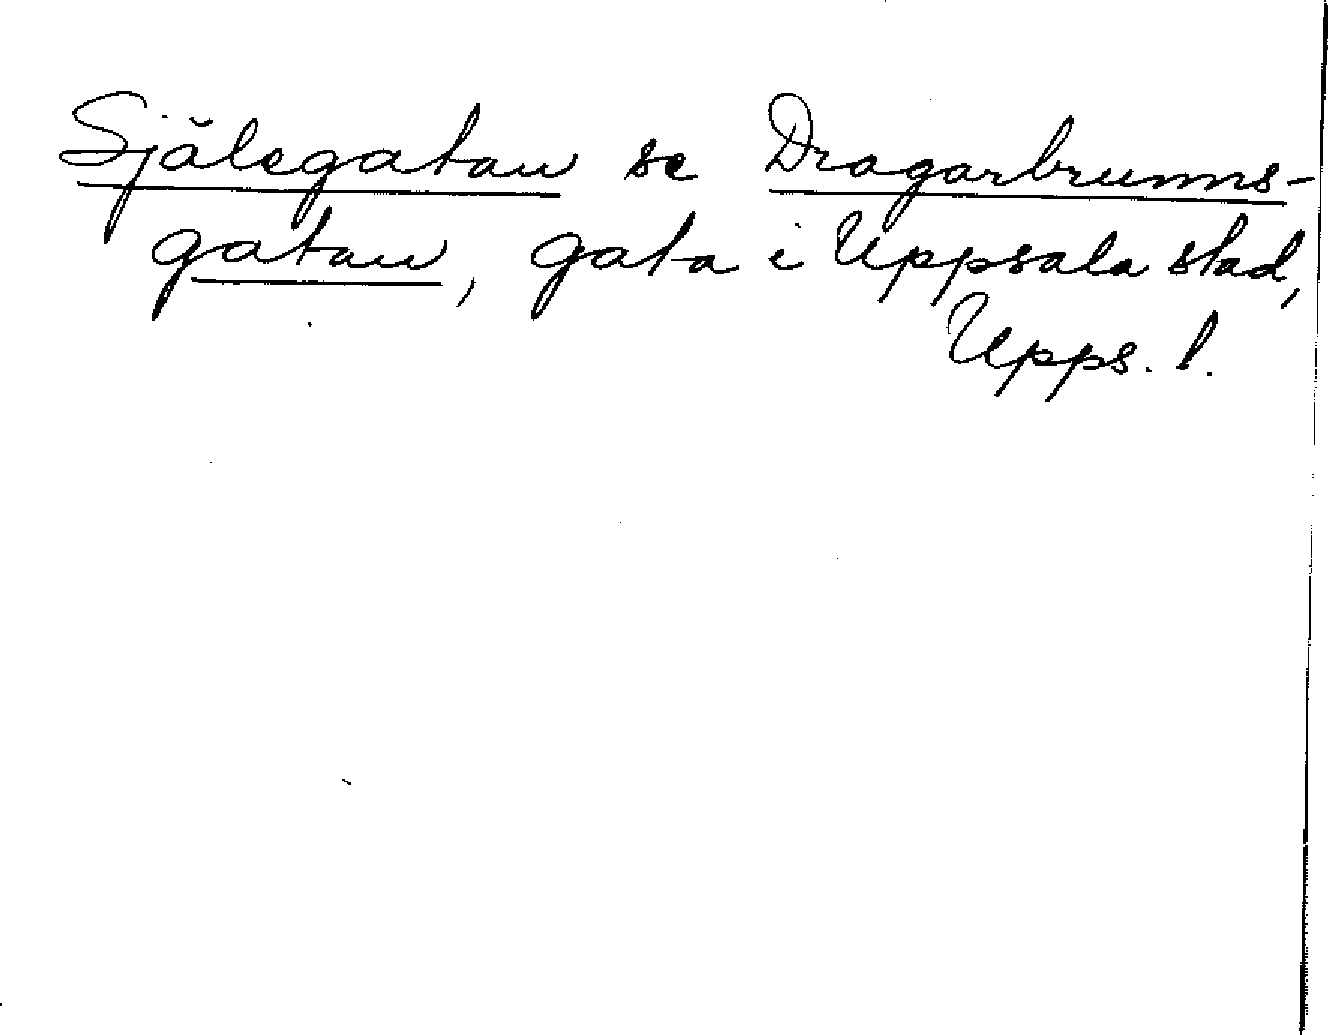 Själegatan se Dragarbrunns-
gatan, gata i Uppsala stad,
Upps. l.